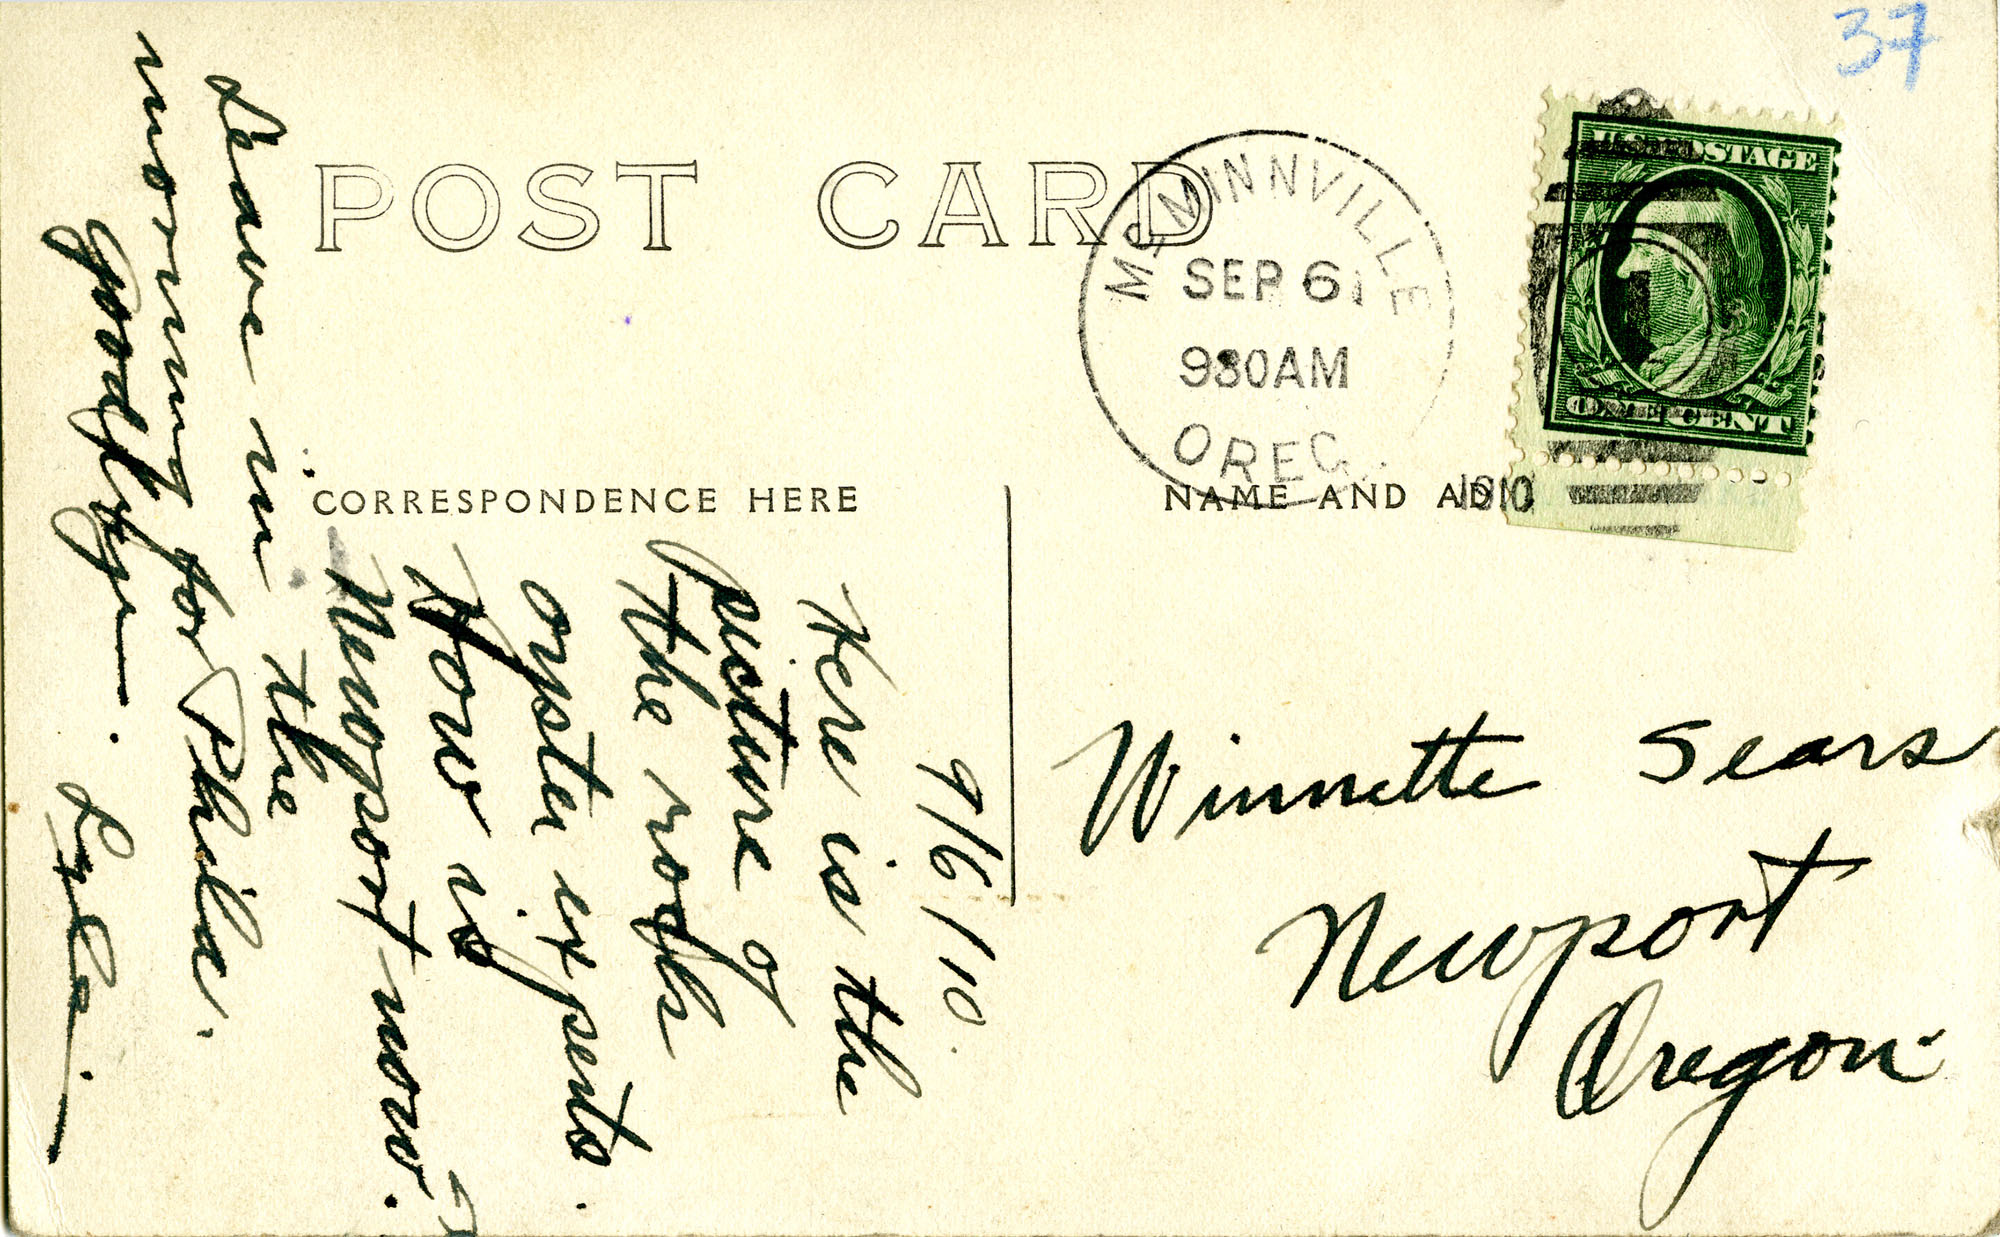 37
POST CARD
McMINNVILLE
SEP 6
930AM
OREG.
1910
U.S. POSTAGE
ONE CENT
CORRESPONDENCE HERE
NAME AND AD
9/6/10.
Here is the
picture of
the rock
oyster experts.
How is
Newport now. I
leave in the
morning for Phila.
Goodbye. Lyla.
Winnette Sears
Newport
Oregon.